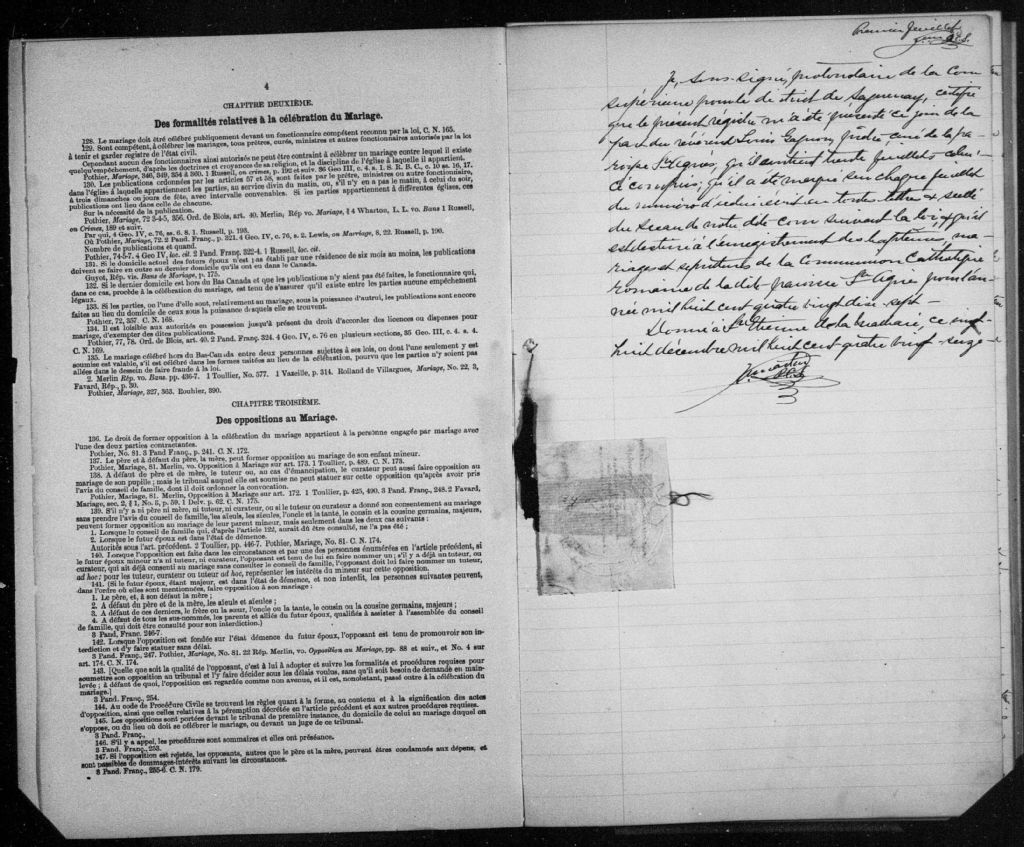 4
CHAPITRE DEUXIÈME.
Des formalités relatives à la célébration du Mariage.
128. Le mariage doit être célébré publiquement devant un fonctionnaire compétent reconnu par la loi, C. N. 165.
129. Sont compétents, à célébrer les mariages, tous prêtres, curés, ministres et autres fonctionnaires autorisés par la loi
à tenir et garder registre de l'état civil.
Cependant aucun des fonctionnaires ainsi autorisés ne peut être contraint à célébrer un mariage contre lequel il existe
quelqu'empêchement, d'après les doctrines et croyances de sa religion, et la discipline de l'église à laquelle il appartient.
Pothier, Mariage, 346, 349, 354 & 360. 1 Russell, on crimes, p. 192 et suiv. 36 Geo III, c. 4, s. 1. S. R. B. C., c. 10 ss. 16, 17.
130. Les publications ordonnées par les articles 57 et 58, sont faites par le prêtre, ministres ou autre fonctionnaire,
dans l'église à laquelle appartiennent les parties, au service divin du matin, ou, s'il n'y en a pas le matin, à celui du soir,
à trois dimanches ou jours de fête, avec intervalle convenables. Si les parties appartiennent à différentes églises, ces
publications ont lieu dans celle de chacune.
Sur la nécessité de la publication.
Pothier, Mariage, 72 3-4-5, 356. Ord. de Blois, art. 40. Merlin, Rép vo. Mariage, § 4 Wharton, L. L. vo. Bans 1 Russell,
on Crimes, 189 et suiv.
Par qui, 4 Geo. IV, c. 76, ss. 6. 8. 1. Russell, p. 193.
Où Pothier, Mariage, 72. 2 Pand. Franç., p. 321. 4 Geo IV, c. 76, s. 2. Lewis, on Marriage, 8, 22. Russell, p. 190.
Nombre de publications et quand.
Pothier, 74-5-7. 4 Geo IV, loc. cit. 2 Pand. Franç. 322-4. 1 Russell, loc. cit.
131. Si le domicile actuel des futurs époux n'est pas établi par une résidence de six mois au moins, les publications
doivent se faire en outre au dernier domicile qu'ils ont eu dans le Canada.
Guyot, Rép. vis. Bans de Mariage, p. 175.
132. Si le dernier domicile est hors du Bas Canada et que les publications n'y aient pas été faites, le fonctionnaire qui,
dans ce cas, procède à la célébration du mariage, est tenu de s'assurer qu'il existe entre les parties aucune empêchement
légaux.
133. Si les parties, ou l'une d'elle sont, relativement au mariage, sous la puissance d'autrui, les publications sont encore
faites au lieu du domicile de ceux sous la puissance desquels elle se trouvent.
Pothier, 72, 357. C. N. 168.
134. Il est loisible aux autorités en possession jusqu'à présent du droit d'accorder des licences ou dispenses pour
mariage, d'exempter des dites publications.
Pothier, 77, 78. Ord. de Blois, art. 40. 2 Pand Franç. 324. 4 Geo IV, c. 76 en plusieurs sections, 35 Geo. III, c. 4. s. 4.
C. N. 169.
135. Le mariage célébré hors du Bas-Canada entre deux personnes sujettes à ses lois, ou dont l'une seulement y est
soumise est valable, s'il est célébré dans les formes usitées au lieu de la célébration, pourvu que les parties n'y soient pas
allées dans le dessein de faire fraude à la loi.
2. Merlin Rép. vo. Bans. pp. 436-7. 1 Toullier, No. 577. 1 Vazeille, p. 314. Rolland de Villargues, Mariage, No. 22, 3,
Favard, Rép., p. 30.
Pothier, Mariage, 327, 363. Rouhier, 390.
CHAPITRE TROISIÈME.
Des oppositions au Mariage.
136. Le droit de former opposition à la célébration du mariage appartient à la personne engagée par mariage avec
l'une des deux parties contractantes.
Pothier, No. 81. 3 Pand Franç., p. 241. C. N. 172.
137. Le père et à défaut du père, la mère, peut former opposition au mariage de son enfant mineur.
Pothier, Mariage, 81. Merlin, vo. Opposition à Mariage sur art. 173. 1 Toullier, p. 489. C. N. 173.
138. A défaut de père et de mère, le tuteur ou, au cas d'émancipation, le curateur peut aussi faire opposition au
mariage de son pupille; mais le tribunal auquel elle est soumise ne peut statuer sur cette opposition qu'après avoir pris
l'avis du conseil de famille, dont il doit ordonner la convocation.
Pothier, Mariage, 81. Merlin, Opposition à Mariage sur art. 172. 1 Toullier, p. 425, 490. 3 Pand. Franç., 248. 2 Favard,
Mariage, sec. 2, § 1, No. 5, p. 59. 1 Delv. p. 62. C. N. 175.
139. S'il n'y a ni père ni mère, ni tuteur, ni curateur, ou si le tuteur ou curateur a donné son consentement au mariage
sans prendre l'avis du conseil de famille, les aïeuls, les aïeules, l'oncle et la tante, le cousin et la cousine germains, majeurs,
peuvent former opposition au mariage de leur parent mineur, mais seulement dans les deux cas suivants :
1. Lorsque le conseil de famille qui, d'après l'article 122, aurait dû être consulté, ne l'a pas été ;
2. Lorsque le futur époux est dans l'état de démence.
Autorités sous l'art. précédent. 2 Toullier, pp. 446-7. Pothier, Mariage, No. 81. C. N. 174.
140. Lorsque l'opposition est faite dans les circonstances et par une des personnes énumérées en l'article précédent, si
le futur époux mineur n'a ni tuteur, ni curateur, l'opposant est tenu de lui en faire nommer un; s'il y a déjà un tuteur, ou
curateur, qui ait déjà consenti au mariage sans consulter le conseil de famille, l'opposant doit lui faire nommer un tuteur,
ad hoc; pour les tuteur, curateur ou tuteur ad hoc, représenter les intérêts du mineur sur cette opposition.
141. (Si le futur époux, étant majeur, est dans l'état de démence, et non interdit, les personnes suivantes peuvent,
dans l'ordre où elles sont mentionnées, faire opposition à son mariage :
1. Le père, et, à son défaut la mère ;
2. A défaut du père et de la mère, les aïeuls et aïeules ;
3. A défaut de ces derniers, le frère ou la sœur, l'oncle ou la tante, le cousin ou la cousine germains, majeurs ;
4. A défaut de tous les sus-nommés, les parents et alliés du futur époux, qualifiés à assister à l'assemblée du conseil
de famille, qui doit être consulté pour son interdiction.)
3 Pand. Franç. 246-7.
142. Lorsque l'opposition est fondée sur l'état démence du futur époux, l'opposant est tenu de promouvoir son in-
terdiction et d'y faire statuer sans délai.
3 Pand. Franç., 247. Pothier, Mariage, No. 81. 22 Rép. Merlin, vo. Opposition au Mariage, pp. 88 et suiv., et No. 4 sur
art. 174. C. N. 174.
143. [Quelle que soit la qualité de l'opposant, c'est à lui à adopter et suivre les formalités et procédures requises pour
soumettre son opposition au tribunal et l'y faire décider sous les délais voulus, sans qu'il soit besoin de demande en main-
levée ; à défaut de quoi, l'opposition est regardée comme non avenue, et il est, nonobstant, passé outre à la célébration du
mariage.]
3 Pand. Franç., 254.
144. Au code de Procédure Civile se trouvent les règles quant à la forme, au contenu et à la signification des actes
d'opposition, ainsi que celles relatives à la péremption décrétée en l'article précédent et aux autres procédures requises.
145. Les oppositions sont portées devant le tribunal de première instance, du domicile de celui au mariage duquel on
s'oppose, ou du lieu où doit se célébrer le mariage, ou devant un juge de ce tribunal.
3 Pand. Franç.,
146. S'il y a appel, les procédures sont sommaires et elles ont préséance.
3 Pand. Franç., 253.
147. Si l'opposition est rejetée, les opposants, autres que le père et la mère, peuvent être condamnés aux dépens, et
sont passibles de dommages-intérêts suivant les circonstances.
3 Pand. Franç., 255-6. C. N. 179.
Premier feuillet
Je, sous-signé, protonotaire de la Cour
supérieure pour le district de Saguenay, certifie
que le présent régistre m'a été présenté ce jour de la
part du révérend Louis Gagnon, prêtre, curé de la pa-
roisse St Agnès; qu'il contient trente feuillets celui-
ci compris; qu'il a été marqué sur chaque feuillet
du numéro d'icelui écrit en toutes lettres & scellé
du sceau de notre dite cour suivant la loi, & qu'il
est destiné à l'enregistrement des baptêmes, ma-
riages et sépultures de la Communion Catholique
romaine de la dite paroisse St Agnès pour l'an-
née mil huit cent quatre vingt dix sept —
Donné à St Etienne de la Malbaie, ce vingt
huit décembre mil huit cent quatre vingt seize